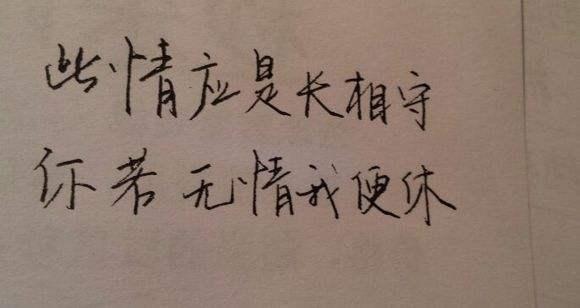 此情应是长相守
你若无情我便休